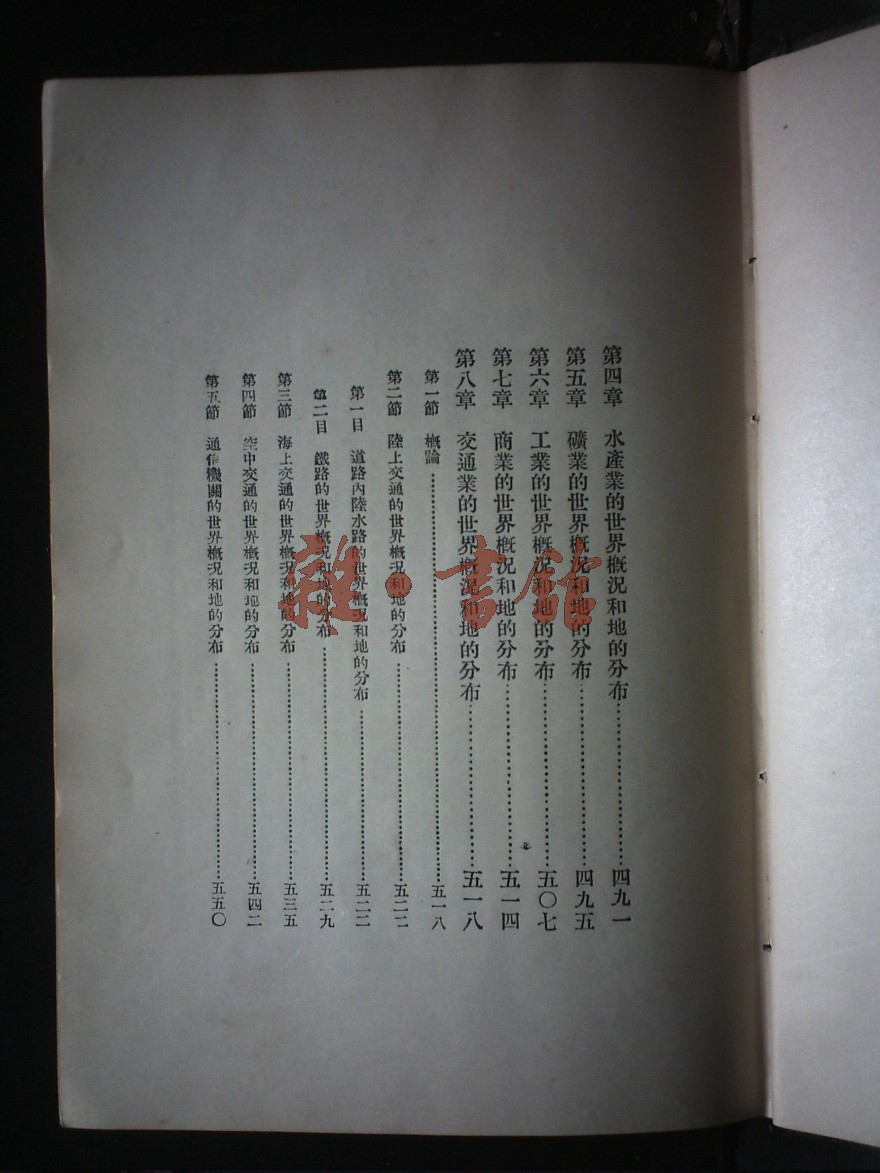 第四章 水產業的世界概況和地的分布……四九一
第五章 礦業的世界概況和地的分布……四九五
第六章 工業的世界概況和地的分布……五〇七
第七章 商業的世界概況和地的分布……五一四
第八章 交通業的世界概況和地的分布……五一八
第一節 概論……五一八
第二節 陸上交通的世界概況和地的分布……五二二
第一目 道路內陸水路的世界概況和地的分布……五二二
第二目 鐵路的世界概況和地的分布……五二九
第三節 海上交通的世界概況和地的分布……五三五
第四節 空中交通的世界概況和地的分布……五四二
第五節 通信機關的世界概況和地的分布……五五〇
雜·書館